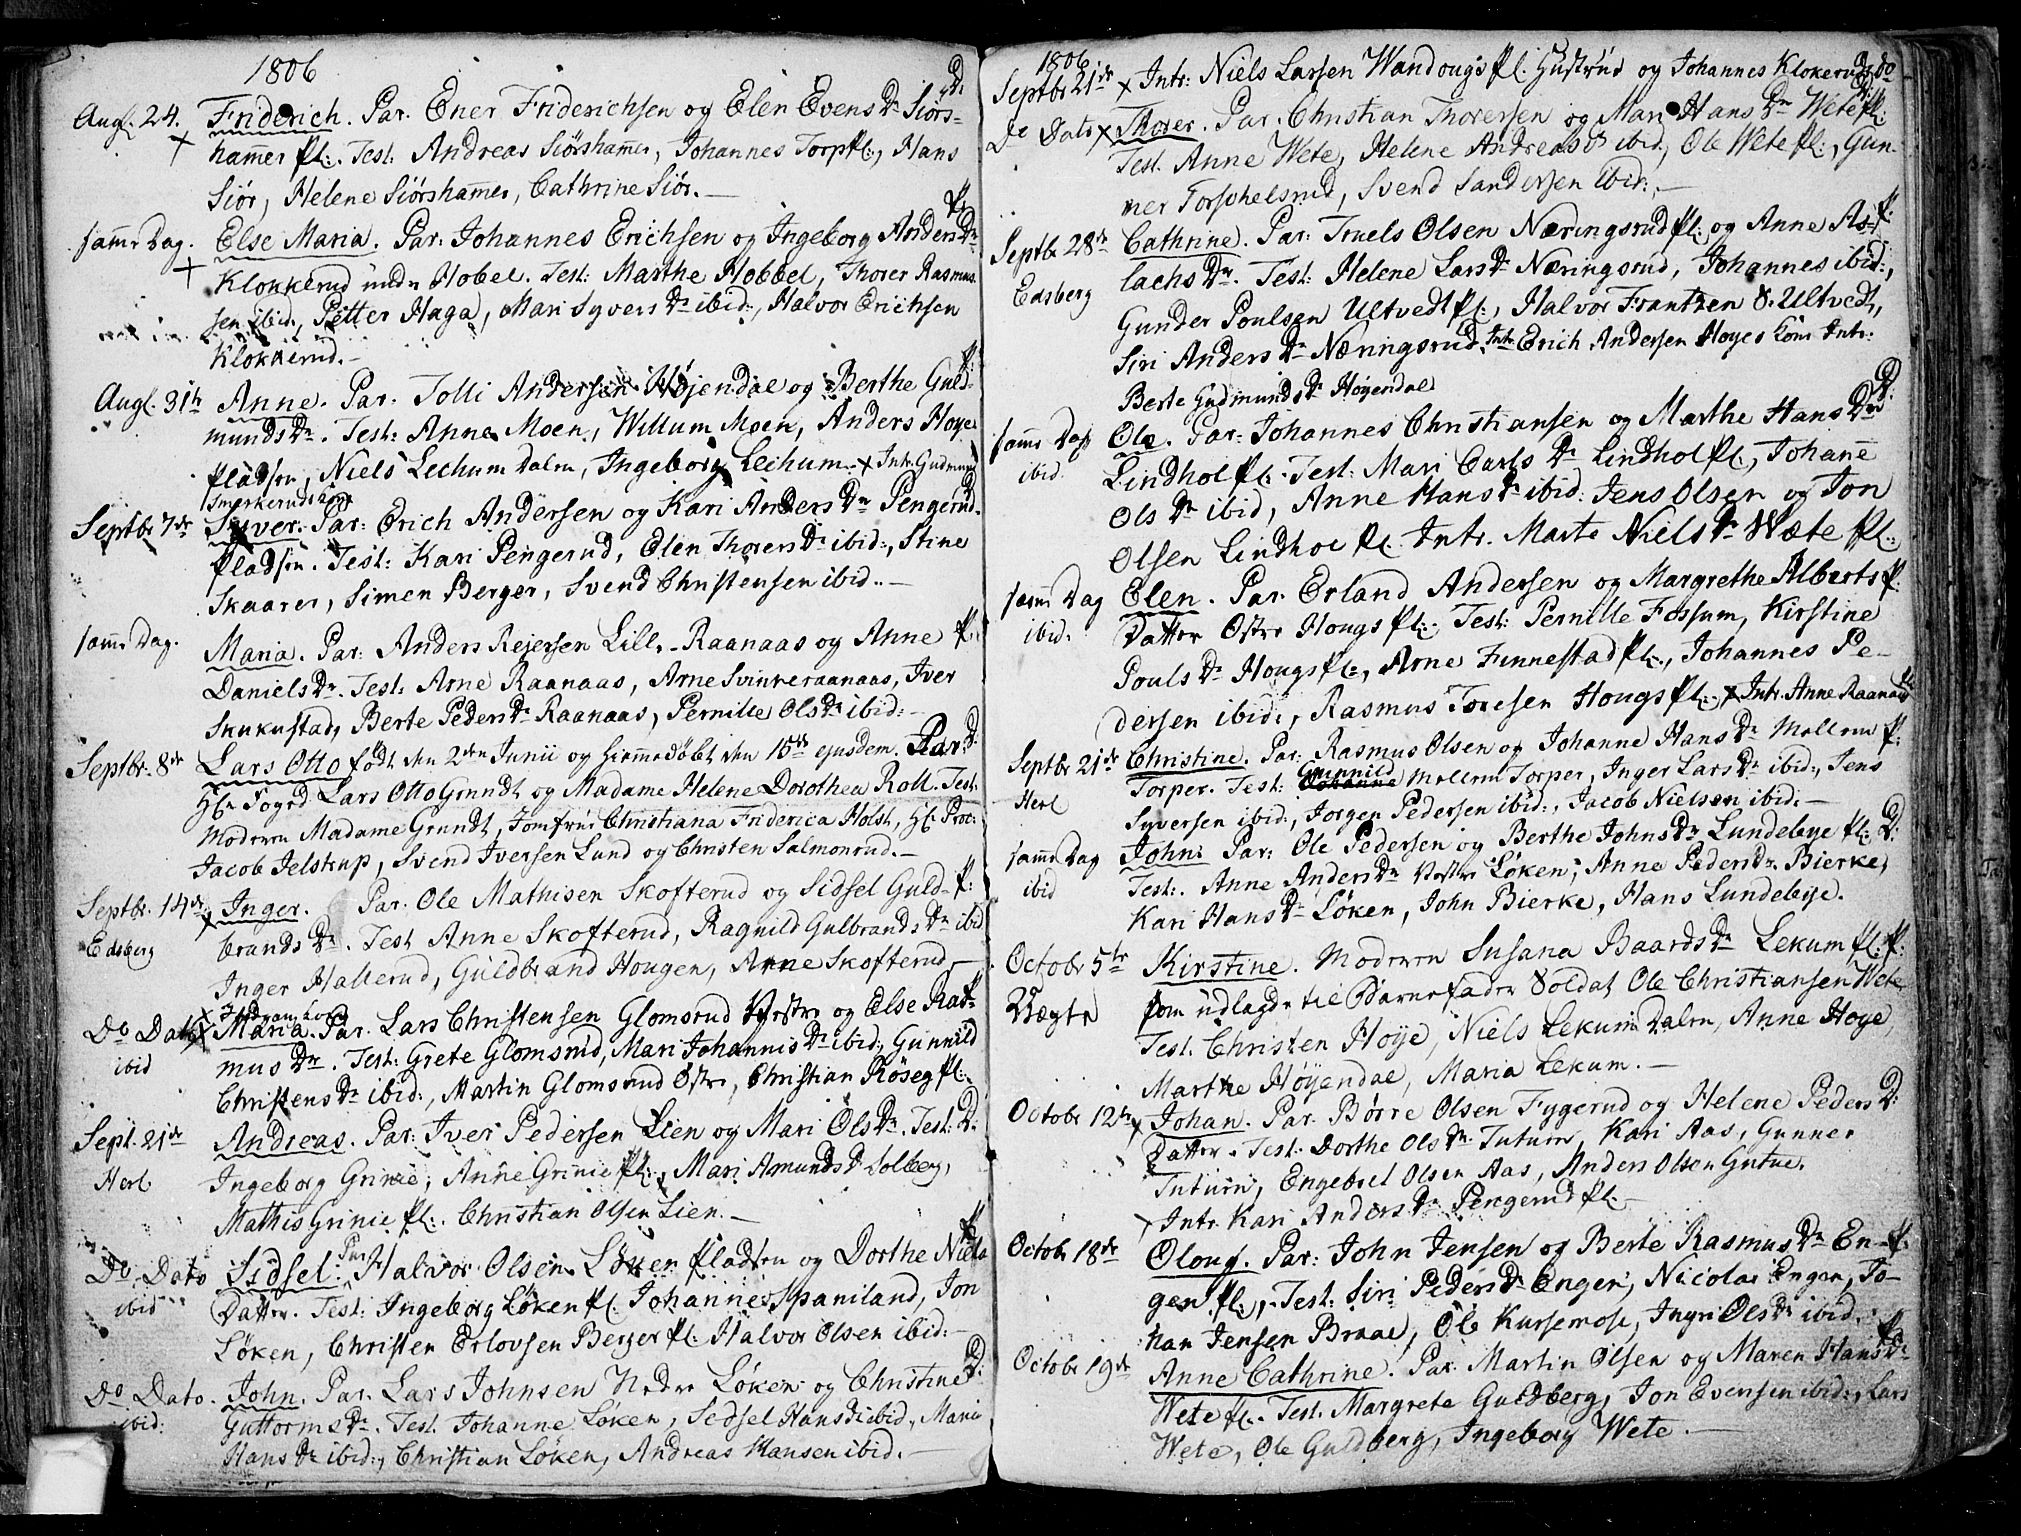 1806
D:
Augt. 24. Friderich. Par. Ener Friderichsen og Elen Evens Dr Siørs-
hamer Pl:. Test: Andreas Siørshamer, Johannes Torp Pl:, Hans
Siør, Helene Siørshamer, Cathrine Siør. —
P.
samme Dag. Else Maria. Par: Johannes Erichsen og Ingeborg Anders Dr
Klokkerud under Hobel. Test: Marthe Hobbel, Thorer Rasmus
sen ibid:, Petter Haga, Mari Syvers Dr ibid:, Halvor Erichsen
Klokkerud. —
P.
Augt. 31te Anne. Par. Tolli Andersen Høiendal og Berthe Guld-
munds Dr. Test: Anne Moen, Willum Moen, Anders Hoye
Pladsen, Niels Lechum Dalen, Ingeborg Lechum. x Intr. Gudmund
Smerkeruds Kone D
Septbr 7de Syver. Par: Erich Andersen og Kari Anders Dr Pengerud-
Pladsen. Test: Kari Pengerud, Elen Thorers Dr ibid:, Stine
Skaarer, Simen Berger, Svend Christensen ibid.. —
samme Dag. Maria. Par: Anders Rejersen Lill. Raanaas og Anne P:
Daniels Dr. Test: Arne Raanaas, Arne Svinneraanaas, Iver
Skukustad, Berte Peders Dr Raanaas, Pernille Ols Dr ibid: —
Septbr. 8de Lars Otto født den 2den Junii og hiemmedøbt den 15de ejusdem. Par: D:
Hr Foged Lars Otto Grundt og Madame Helene Dorothea Roll. Test:
Moderen Madame Grundt, Jomfrue Christiana Friderica Holst, Hr. Proc:
Jacob Jelstrup, Svend Iversen Lund og Christen Salmonrud. —
Septbr. 14de x Inger. Par. Ole Mathisen Skofterud og Sidsel Guld- P:
Edsberg brands Dr. Test Anne Skofterud, Ragnild Gulbrands Dr ibid
Inger Hallerud, Guldbrand Hougen, Anne Skofterud, —
Do Dato x Maria. Par. Lars Christensen Glomsrud Vestre og Else Ras- P.
ibid mus Dr. Test: Grete Glomsrud, Mari Johannis Dr ibid:, Gunnild
Christens Dr ibid:, Martin Glomsrud Østre, Christian Røseg Pl:
Sept. 21de Andreas. Par: Iver Pedersen Lien og Mari Ols Dr. Test: D:
Herl. Ingeborg Grinie, Anne Grinie Pl:, Mari Amunds Dr Solberg,
Mathis Grinie Pl:. Christian Olsen Lien. —
P
Do Dato Sidsel. Par Halvor Olsen Løken Pladsen og Dorthe Niels
ibid Datter. Test: Ingeborg Løken Pl. Johannes Spaniland, Jon
Løken, Christen Erlovsen Berger Pl. Halvor Olsen ibid: —
Do Dato. John. Par. Lars Johnsen Nedre Løken og Christine D:
ibid: Guttorms Dr. Test. Johanne Løken, Sedsel Hans Dr ibid:, Maria
Hans Dr ibid:, Christian Løken, Andreas Hansen ibid. —
1806
Septbr 21de x Intr. Niels Larsen Wandougs Pl: Gustrud og Johannes Klokeruds do
Do Dato x Thorer. Par. Christian Thorersen og Mari Hans Dr Wete Pl:
Test. Anne Wete, Helene Andreas Dr ibid:, Ole Wete Pl:, Gun-
ner Torschelsrud, Svend Sandersen ibid:. —
P:
Septbr 28de Cathrine. Par. Truels Olsen Næringsrud Pl: og Anne As-
Edsberg lachs Dr. Test: Helene Lars Dr Næringsrud, Johannes ibid:,
Gunder Poulsen Ultvedt Pl:, Halvor Frantzen S. Ultvedt,
Siri Anders Dr Næringsrud. Intr Erich Andersen Hoyes Kone Intr:
Berte Gudmunds Dr Høyendal
D:
samme Dag Ole. Par: Johannes Christiansen og Marthe Hans Dr
ibid. Lindhol Pl:. Test: Mari Carls Dr Lindhol Pl:, Johane
Ols Dr ibid, Anne Hans Dr ibid: Jens Olsen og Jon
Olsen Lindhol Pl. Intr. Marte Niels Dr Wæte Pl:
samme Dag Elen. Par. Erland Andersen og Margrethe Alberts P.
ibid: Datter Østre Hougs Pl:. Test: Pernille Fossum, Kirstine
Pouls Dr Hougs Pl:, Arne Finnestad Pl:, Johannes Pe-
dersen ibid:, Rasmus Toresen Hougs Pl:. x Intr. Anne Raanaas Pl
Septbr 21de Christine. Par: Rasmus Olsen og Johanne Hans Dr Mellem P:
Herl Torper. Test: Gunnild Mellem Torper, Inger Lars Dr ibid:, Jens
Syversen ibid:, Jorgen Pedersen ibid:, Jacob Nielsen ibid: —
samme Dag John: Par: Ole Pedersen og Berthe Johns Dr Lundebye Pl: D:
ibid Test:. Anne Anders Dr Vestre Løken, Anne Peders Dr. Bierke,
Kari Hans Dr Løken, John Bierke, Hans Lundebye.
October 5te Kirstine. Moderen Susana Baards Dr Lekum Pl: P:
Vægte som udlagde til Barnefader Soldat Ole Christiansen Wete
Test. Christen Hoye, Niels Lekum Dalen, Anne Hoye,
Marthe Høyendal, Maria Lekum. —
October 12te x Johan. Par. Børre Olsen Fygerud og Helene Peders D:
Datter. Test: Dorthe Ols Dr. Tuturn, Kari Aas, Gunner
Tuturn, Engebret Olsen Aas, Anders Olsen Gutue.
x Intr. Kari Anders Dr Pengerud Pl: —
October 18de Oloug. Par: John Jensen og Berte Rasmus Dr En- P:
gen Pl:, Test: Siri Peders Dr Engen, Nicolai Engen, Jo-
han Jensen Braae, Ole Kursemose, Ingri Ols Dr ibid.
P:
October 19de Anne Cathrine. Par. Martin Olsen og Maren Hans Dr
Wete Pl:. Test. Margrete Guldberg, Jon Evensen ibid:, Lars
Wete, Ole Guldberg, Ingeborg Wete. —